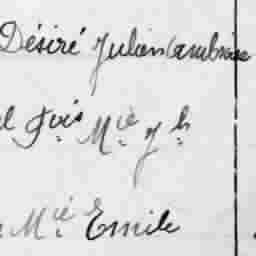 Désiré Julien Cambroise
l Fois Mie Jh
Mie Emile